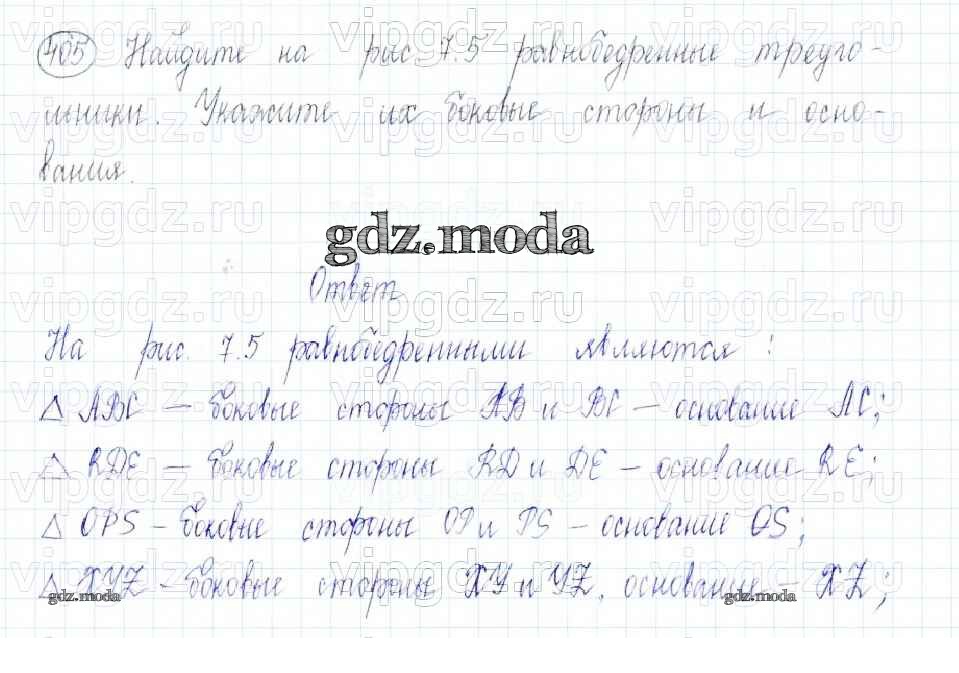 405 Найдите на рис. 7.5 равнобедренные треуго-
льники. Укажите их боковые стороны и осно-
вания.
gdz.moda
Ответ
На рис. 7.5 равнобедренными являются:
△ ABC — боковые стороны AB и BC — основание AC;
△ RDE — боковые стороны RD и DE — основание RE;
△ OPS — боковые стороны OP и PS — основание OS;
△ XYZ - боковые стороны XY и YZ, основание — XZ;
gdz.moda gdz.moda
vipgdz.ru vipgdz.ru vipgdz.ru